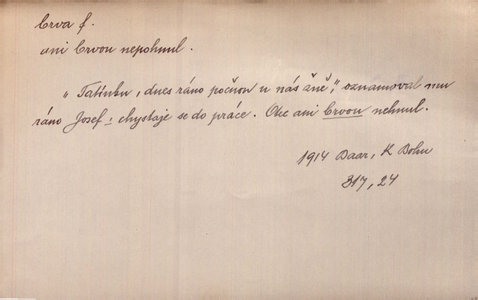 Crva f.
ani Crvou nepohnul.
„Tatínku, dnes ráno počnou u nás žně,“ oznamoval mu
ráno Josef, chystaje se do práce. Otec ani Crvou nehnul.
1914 Baar, K Bohu
317, 24